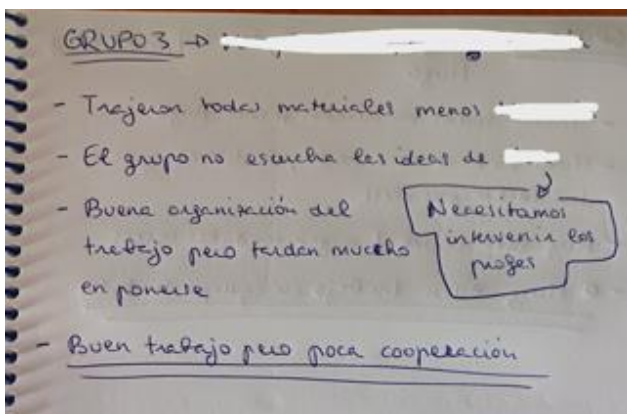 GRUPO 3 →
- Trajeron todos materiales menos
- El grupo no escucha las ideas de
- Buena organización del
trabajo pero tardan mucho
en ponerse
Necesitamos
intervenir los
profes
- Buen trabajo pero poca cooperación